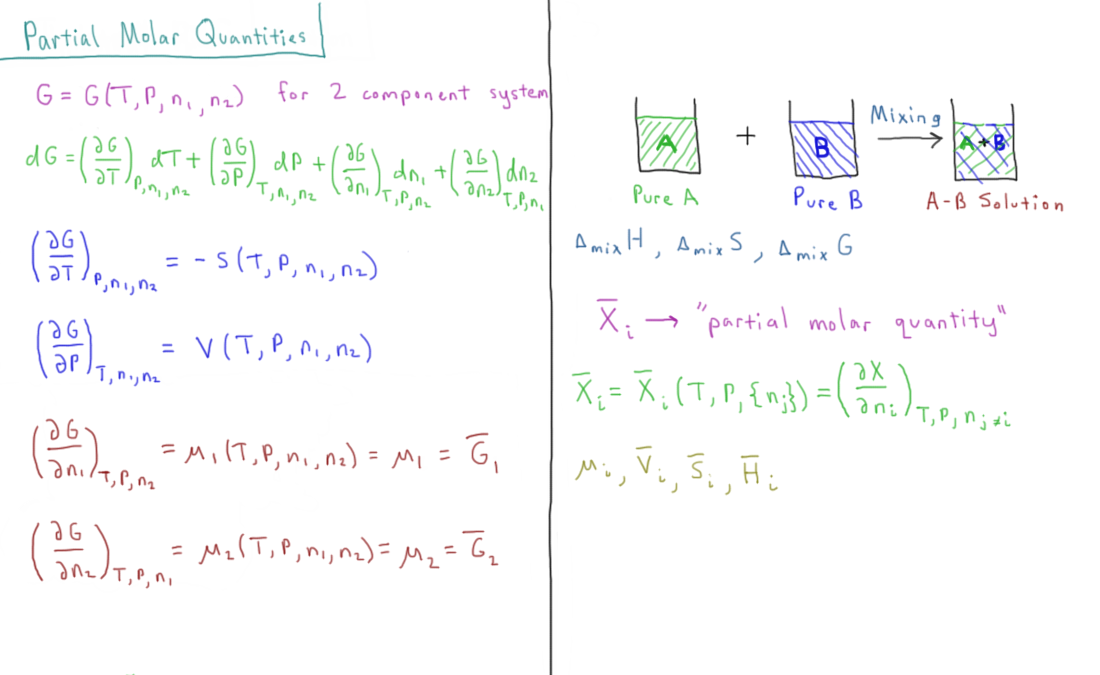 Partial Molar Quantities
G = G(T, P, n₁, n₂) for 2 component system
dG = (∂G/∂T)_P,n₁,n₂ dT + (∂G/∂P)_T,n₁,n₂ dP + (∂G/∂n₁)_T,P,n₂ dn₁ + (∂G/∂n₂)_T,P,n₁ dn₂
(∂G/∂T)_P,n₁,n₂ = - S(T, P, n₁, n₂)
(∂G/∂P)_T,n₁,n₂ = V(T, P, n₁, n₂)
(∂G/∂n₁)_T,P,n₂ = μ₁(T, P, n₁, n₂) = μ₁ = G̅₁
(∂G/∂n₂)_T,P,n₁ = μ₂(T, P, n₁, n₂) = μ₂ = G̅₂
Mixing
A + B → A+B
Pure A Pure B A-B Solution
Δmix H, Δmix S, Δmix G
X̅ᵢ → "partial molar quantity"
X̅ᵢ = X̅ᵢ(T, P, {nⱼ}) = (∂X/∂nᵢ)_T,P,nⱼ≠ᵢ
μᵢ, V̅ᵢ, S̅ᵢ, H̅ᵢ